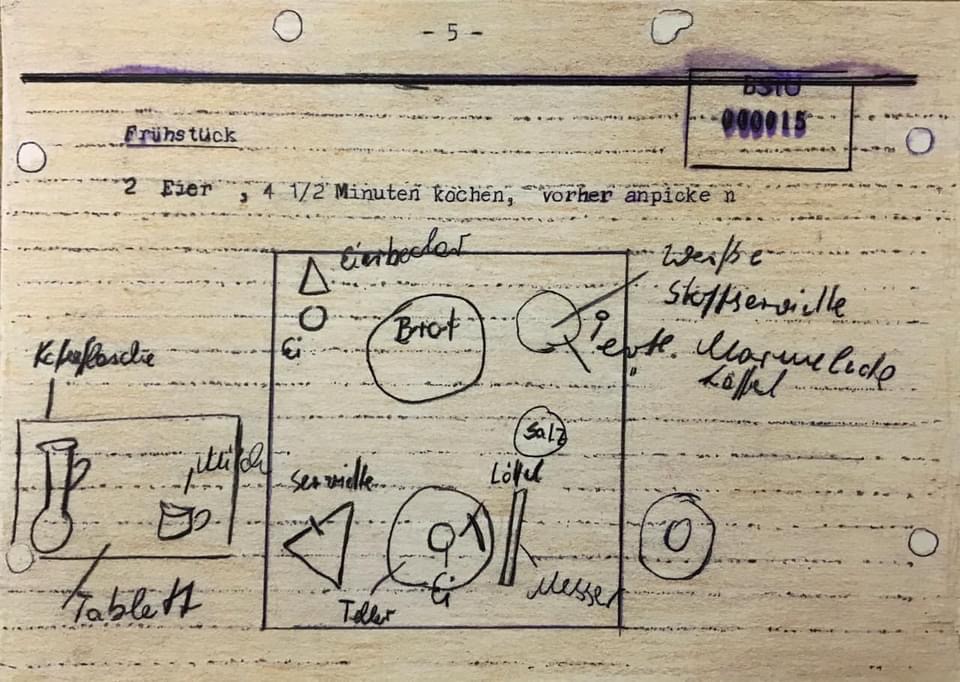 - 5 -
BStU
000015
Frühstück
2 Eier , 4 1/2 Minuten kochen, vorher anpicke n
Eierbecher
Weiße
Stoffserviette
Ei
Brot
evtl. Marmelade
" Löffel
Kaffeflasche
Salz
Milch
Serviette
Löffel
Messer
Ei
Teller
Tablett